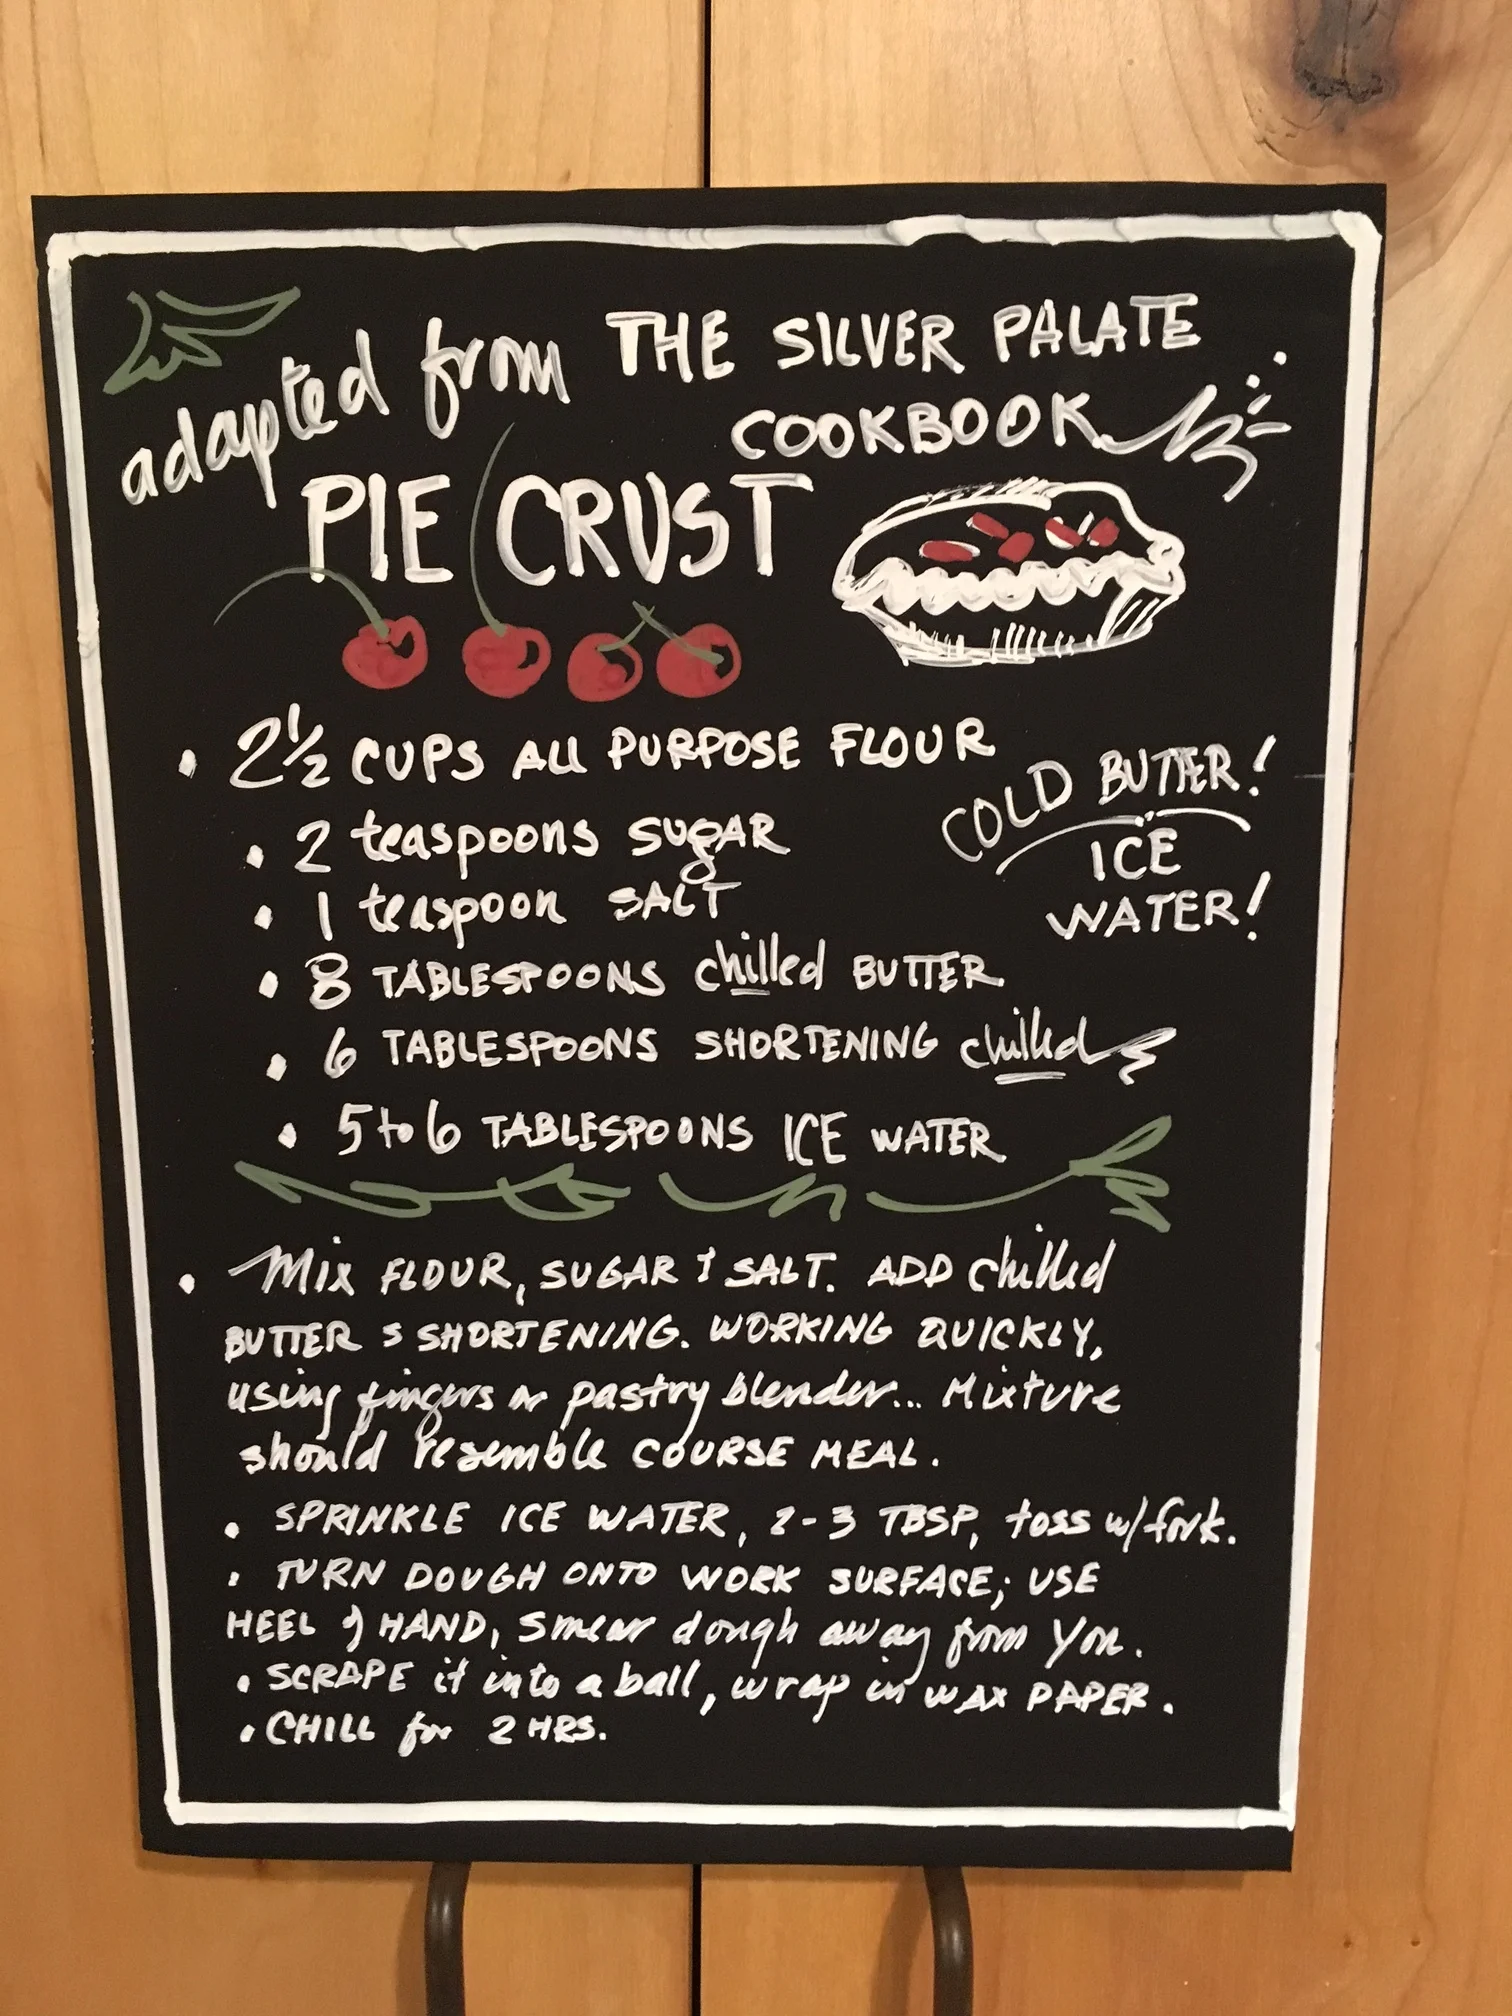 adapted from THE SILVER PALATE
COOKBOOK
PIE CRUST
• 2½ CUPS ALL PURPOSE FLOUR
COLD BUTTER!
ICE
WATER!
• 2 teaspoons SUGAR
• 1 teaspoon SALT
• 8 TABLESPOONS chilled BUTTER
• 6 TABLESPOONS SHORTENING chilled
• 5 to 6 TABLESPOONS ICE WATER
• Mix FLOUR, SUGAR & SALT. ADD chilled
BUTTER & SHORTENING. WORKING QUICKLY,
using fingers or pastry blender... Mixture
should resemble COURSE MEAL.
• SPRINKLE ICE WATER, 2-3 TBSP, toss w/ fork.
• TURN DOUGH ONTO WORK SURFACE; USE
HEEL of HAND, smear dough away from you.
• SCRAPE it into a ball, wrap in WAX PAPER.
• CHILL for 2 HRS.